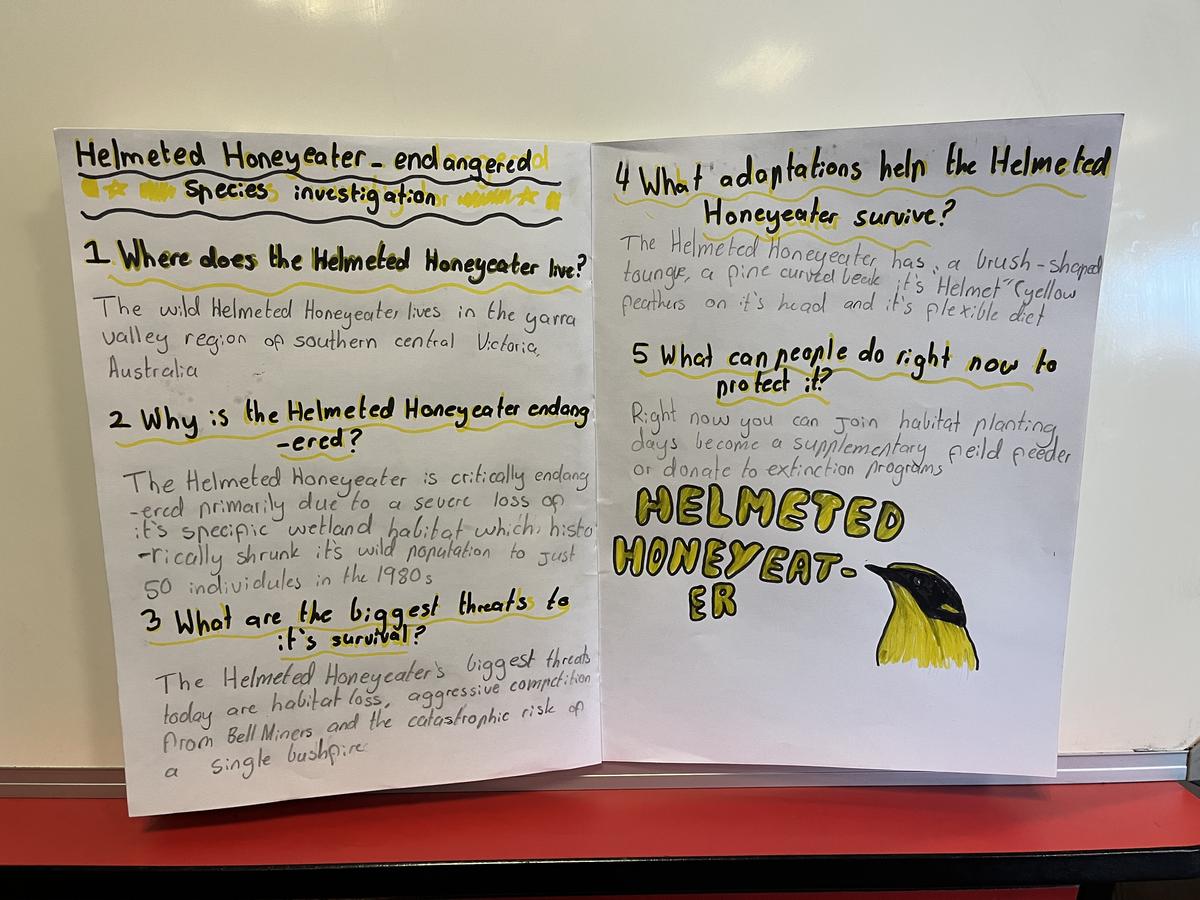 Helmeted Honeyeater - endangered
species investigation
1 Where does the Helmeted Honeyeater live?
The wild Helmeted Honeyeater lives in the yarra
valley region of southern central Victoria,
Australia
2 Why is the Helmeted Honeyeater endang
-ered?
The Helmeted Honeyeater is critically endang
-ered primarily due to a severe loss of
it's specific wetland habitat which, histo
-rically shrunk it's wild population to just
50 individules in the 1980s
3 What are the biggest threats to
it's survival?
The Helmeted Honeyeater's biggest threats
today are habitat loss, aggressive compctition
from Bell Miners and the catastrophic risk of
a single bushfire
4 What adaptations help the Helmeted
Honeyeater survive?
The Helmeted Honeyeater has, a brush-shaped
toungue, a fine curved beek it's Helmet" (yellow
feathers on it's head and it's flexible dict
5 What can people do right now to
protect it?
Right now you can join habitat planting
days become a supplementary feild feeder
or donate to extinction programs
HELMETED
HONEYEAT-
ER